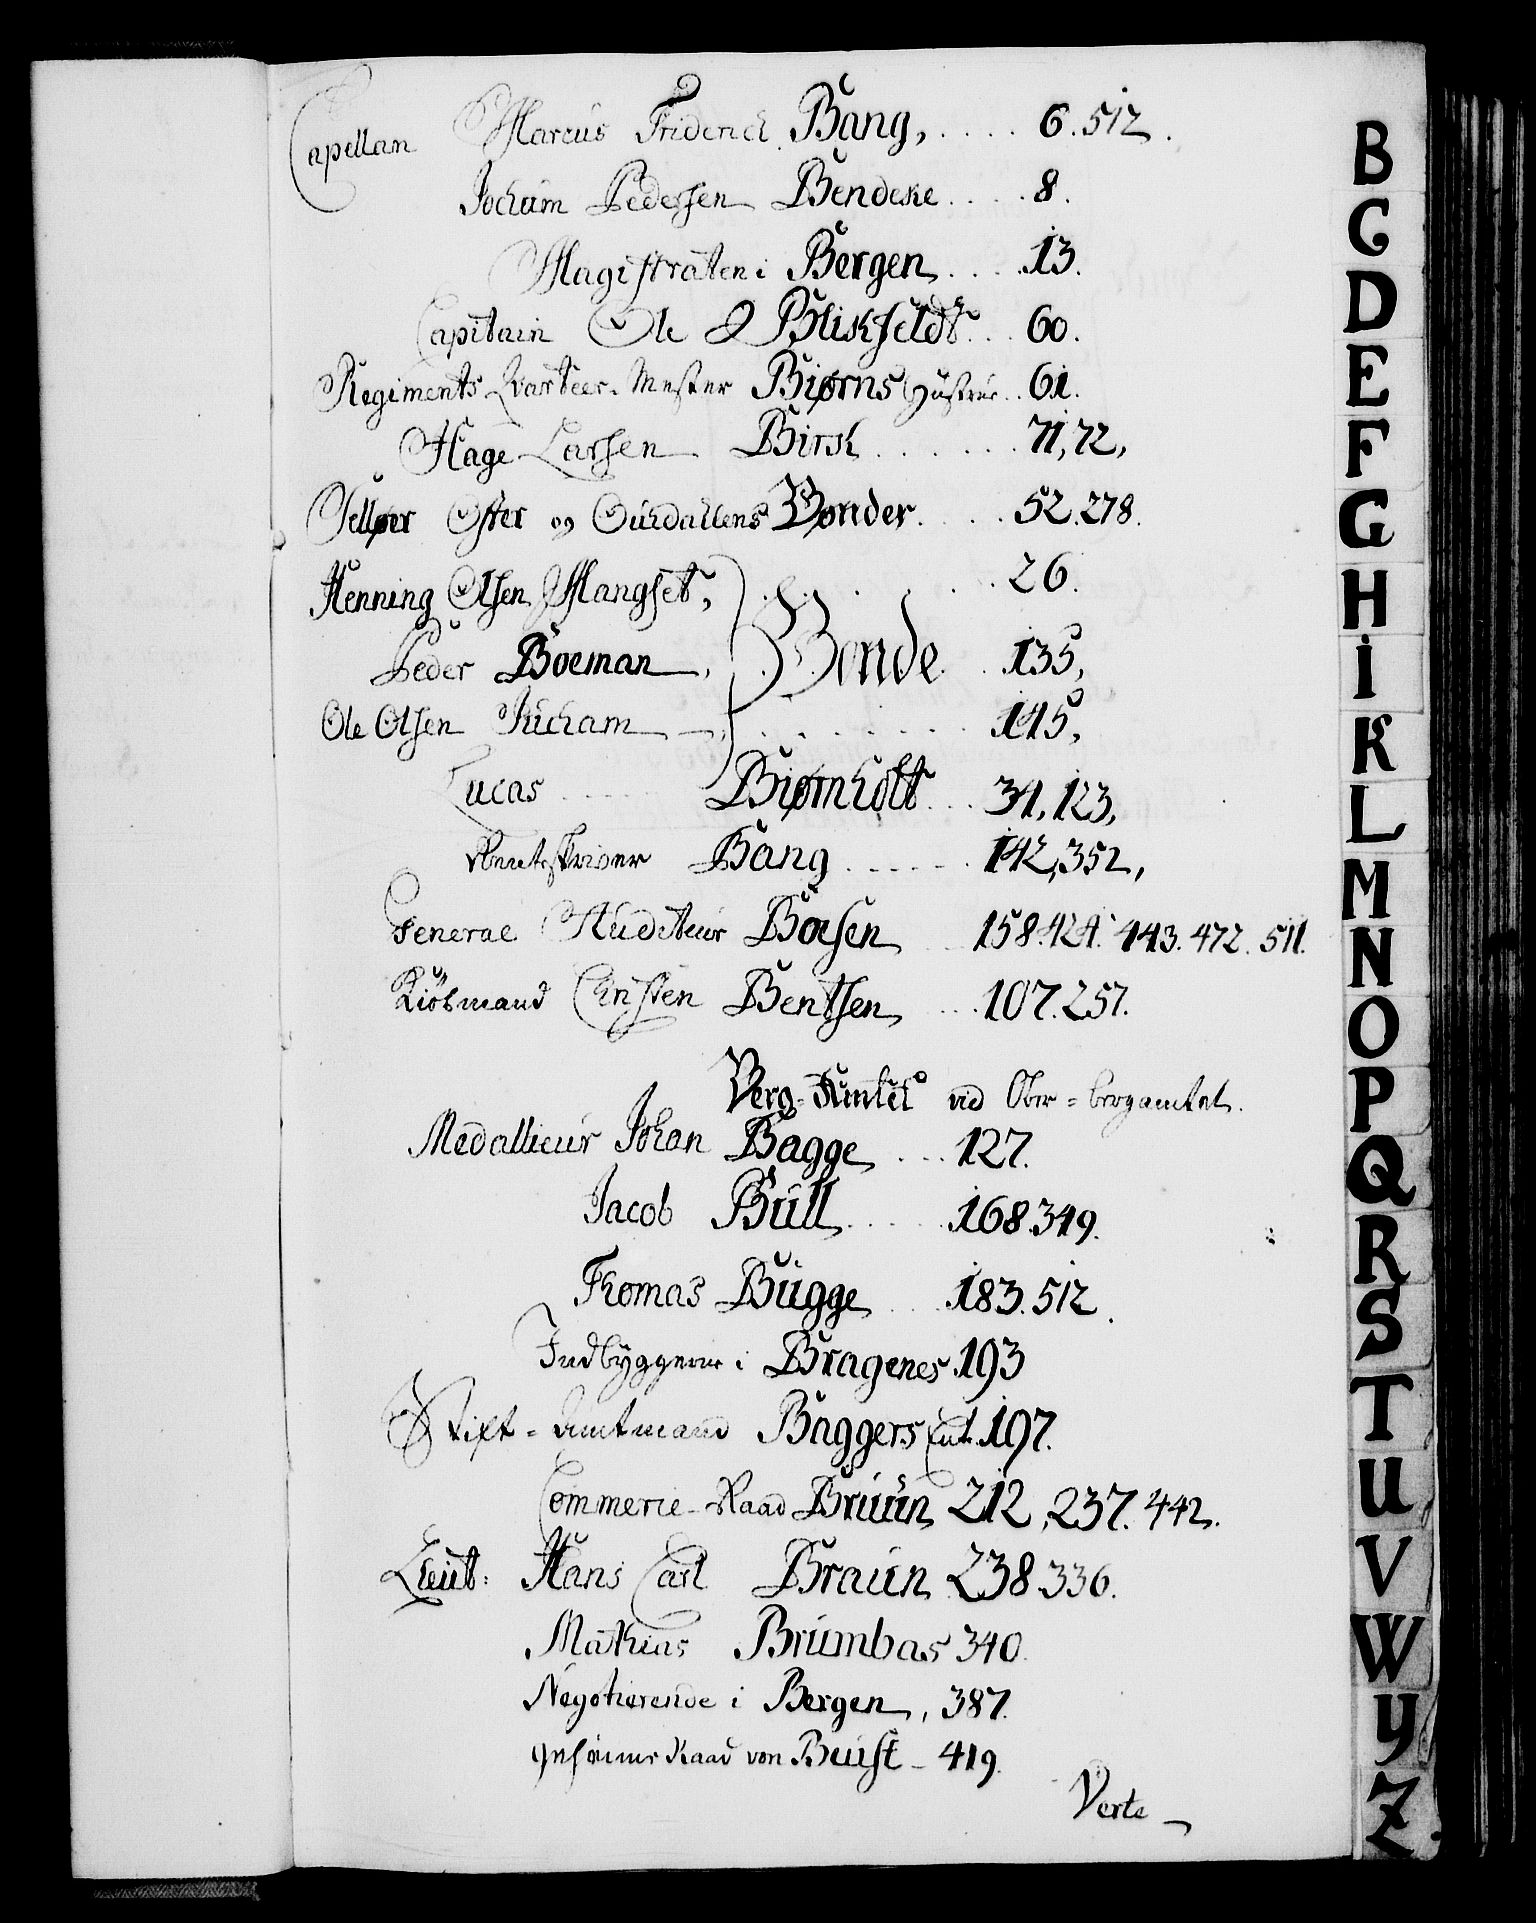 Capellan Marcus Friderich Bang, .... 6. 512.
Jochum Pedersen Bendeke .... 8.
Magistraten i Bergen .... 13.
Capitain Ole Blikfeldt ... 60.
Regiments Qvarteer-Mester Biørns Hustrue .. 61.
Hage Larsen Birch ...... 71, 72,
og Bønder .... 52. 278.
Henning Olsen Mangset, ........ 26.
Peder Boeman, Bonde .. 135,
Ole Olsen ........ 145,
Lucas ..... Biørnholt ... 34, 123,
Amtskriver Bang ...... 142, 352,
General Auditeur Boesen ... 158. 424. 443. 472. 511.
Kiøbmand Christen Bentsen ... 107. 257.
Berg-Amtet vid Ober-bergamtet.
Medallieur Johan Bagge .... 127.
Jacob Bull ..... 168. 349.
Thomas Bugge ... 183. 512.
Indbyggerne i Bragenes. 193
Stift-Amtmand Baggers Enke 197.
Commerce-Raad Bruun 212, 237. 442.
Lieut: Hans Carl Braun 238. 336.
Mathias Brumbas 340.
Negotierende i Bergen, 387.
geheime Raad von Beust - 419.
Verte
B
C
D
E
F
G
H
I
K
L
M
N
O
P
Q
R
S
T
U
V
W
Y
Z